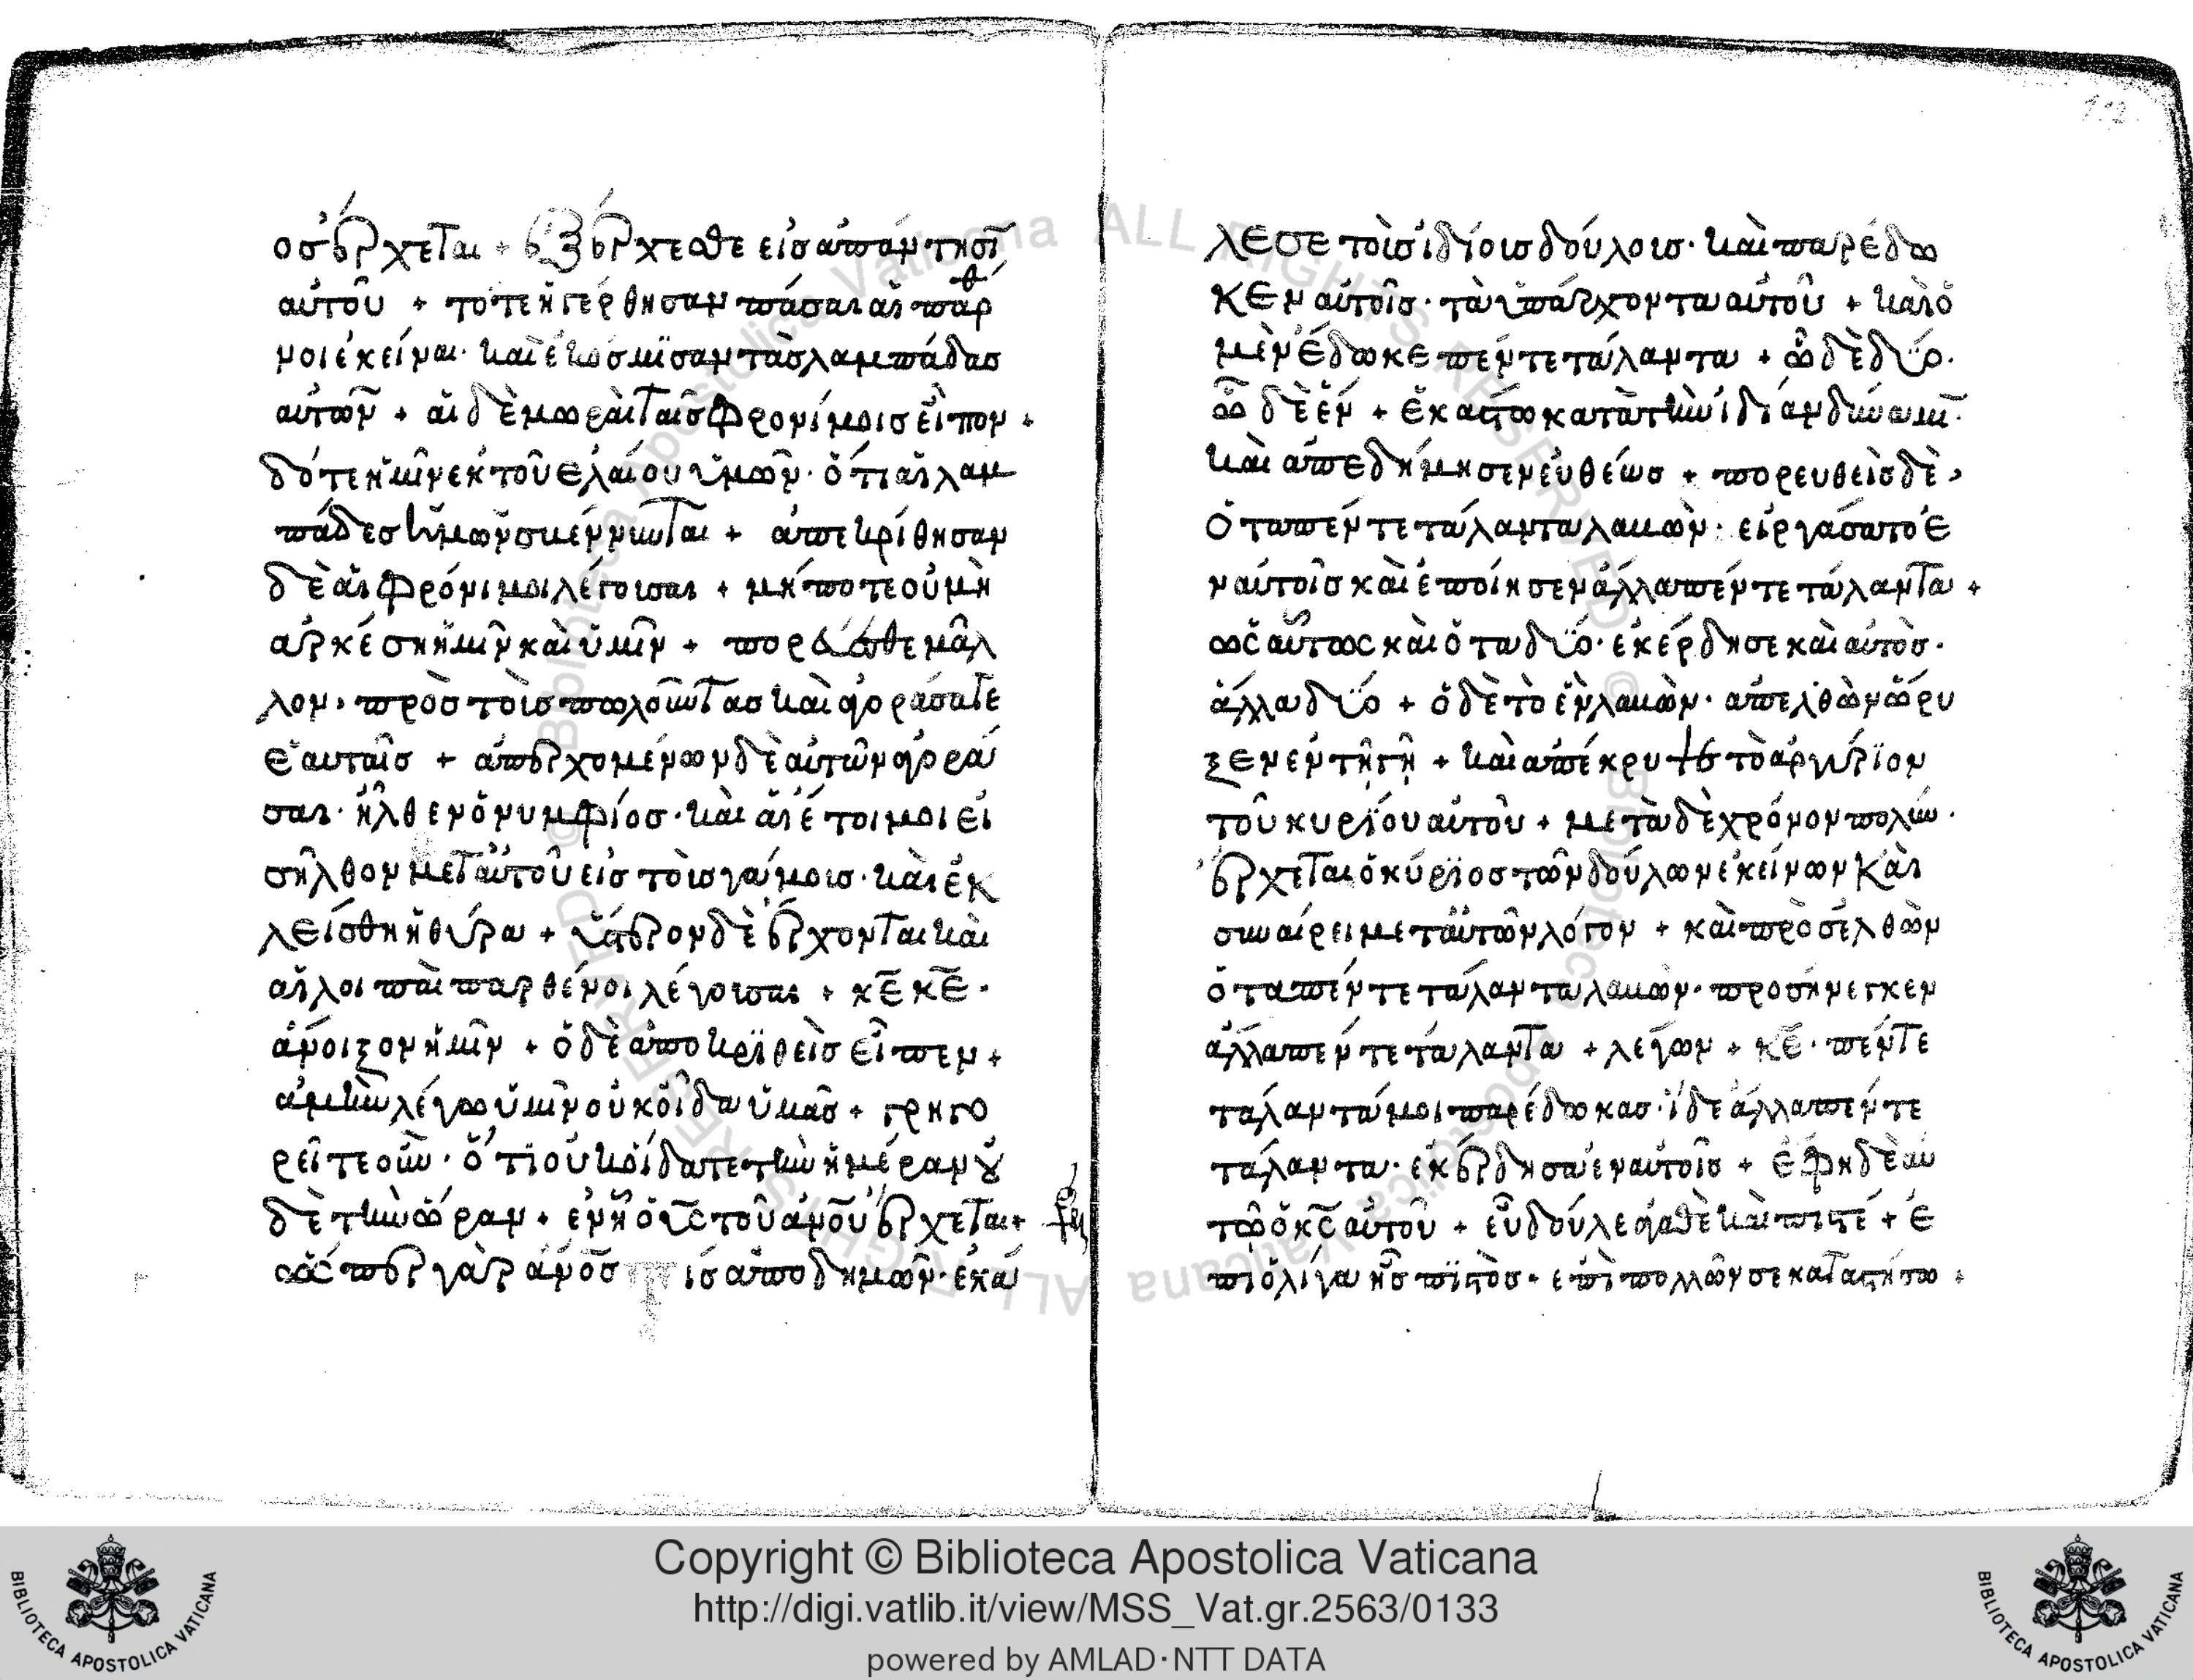 οσ ἔρχεται + ἐξέρχεσθε εἰσ ἀπάντησῑ
αὐτοῦ + τότε ἠγέρθησαν πάσαι αἱ παρθ
νοι ἐκείναι· καὶ ἐκόσμϊσαν τὰσ λαμπάδασ
αὐτῶν + αἱ δὲ μωραὶ ταῖσ φρονίμοισ εἶπον +
δότε ἡμῖν ἐκ τοῦ ἐλαίου ὑμῶν· ὅτι αἱ λαμ
πάδεσ ἡμῶν σβέννυνται + ἀπεκρίθησαν
δὲ αἱ φρόνιμοι λέγουσαι + μήποτε οὐ μὴ
ἀρκέση ἡμῖν καὶ ὑμῖν + πορεύεσθε μᾶλ
λον, πρὸσ τοὺσ πωλοῦντασ καὶ ἀγοράσατε
ἑαυταῖσ + ἀπερχομένων δὲ αὐτῶν ἀγορά
σαι· ἦλθεν ὁ νυμφίοσ· καὶ αἱ ἕτοιμοι εἰ
σῆλθον μετ αὐτοῦ εἰσ τοὺσ γάμουσ· καὶ ἐκ
λείσθη ἡ θύρα + ὕστερον δὲ ἔρχονται καὶ
αἱ λοιπαὶ παρθένοι λέγουσαι + κ̅ε̅ κ̅ε̅·
ἄνοιξον ἡμῖν + ὁ δὲ ἀποκρϊθεὶσ εἶπεν +
ἀμὴν λέγω ὑμῖν οὐκ οἶδα ὑμᾶσ + γρηγο
ρεῖτε οὖν· ὅτι οὐκ οἴδατε τὴν ἡμέραν οὐ
δὲ τὴν ὥραν + ἐν ἧ ὁ υ̅ς̅ τοῦ ἀν̅ου̅ ἔρχεται +
ὥς περ γὰρ ἀν̅οσ̅ τισ ἀποδημῶν· ἐκά
112
λεσε τοὺσ ἰδίουσ δούλουσ· καὶ παρέδω
κεν αὐτοῖσ· τὰ ὑπάρχοντα αὐτοῦ + καὶ ὧ
μὲν ἔδωκε πέντε τάλαντα + ὧ δὲ δϋο·
ὧ δὲ ἕν + ἑκάστω κατὰ τὴν ἰδίαν δύναμῑ·
καὶ ἀπεδήμησεν εὐθέωσ + πορευθεὶσ δὲ,
ὁ τὰ πέντε τάλαντα λαβὼν· εἰργάσατο ἐ
ν αὐτοῖσ καὶ ἐποίησεν ἄλλα πέντε τάλαντα +
ὡς αύτως καὶ ὁ τὰ δϋο· ἐκέρδησε καὶ αὐτὸσ·
ἄλλα δϋο + ὁ δὲ τὸ ἓν λαβὼν· ἀπελθὼν ὤρυ
ξεν ἐν τῆ γῆ + καὶ ἀπέκρυψε τὸ ἀργύρϊον
τοῦ κυρϊου αὐτοῦ + μετὰ δὲ χρόνον πολὺν·
ἔρχεται ὁ κύρϊοσ τῶν δούλων ἐκείνων καὶ
συναίρει μετ αὐτῶν λόγον + καὶ προσελθὼν
ὁ τὰ πέντε τάλαντα λαβὼν· προσήνεγκεν
ἄλλα πέντε τάλαντα + λέγων + κ̅ε̅· πέντε
τάλαντά μοι παρέδωκασ· ἴδε ἄλλα πέντε
τάλαντα· ἐκέρδησα ἐν αὐτοῖσ + ἔφη δὲ αὐ
τῶ ὁ κ̅ς̅ αὐτοῦ + εὖ δοῦλε ἀγαθὲ καὶ πιστέ + ἐ
πὶ ὀλίγα ἦσ πϊστὸσ· ἐπὶ πολλῶν σε καταστήσω +
Copyright © Biblioteca Apostolica Vaticana
http://digi.vatlib.it/view/MSS_Vat.gr.2563/0133
powered by AMLAD·NTT DATA
BIBLIOTECA APOSTOLICA VATICANA
BIBLIOTECA APOSTOLICA VATICANA